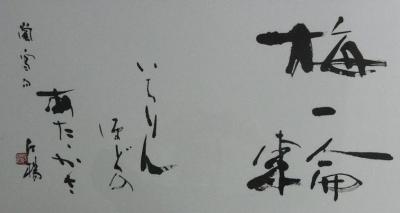 梅一輪
いちりん
ほどの
あたたかさ
嵐雪句